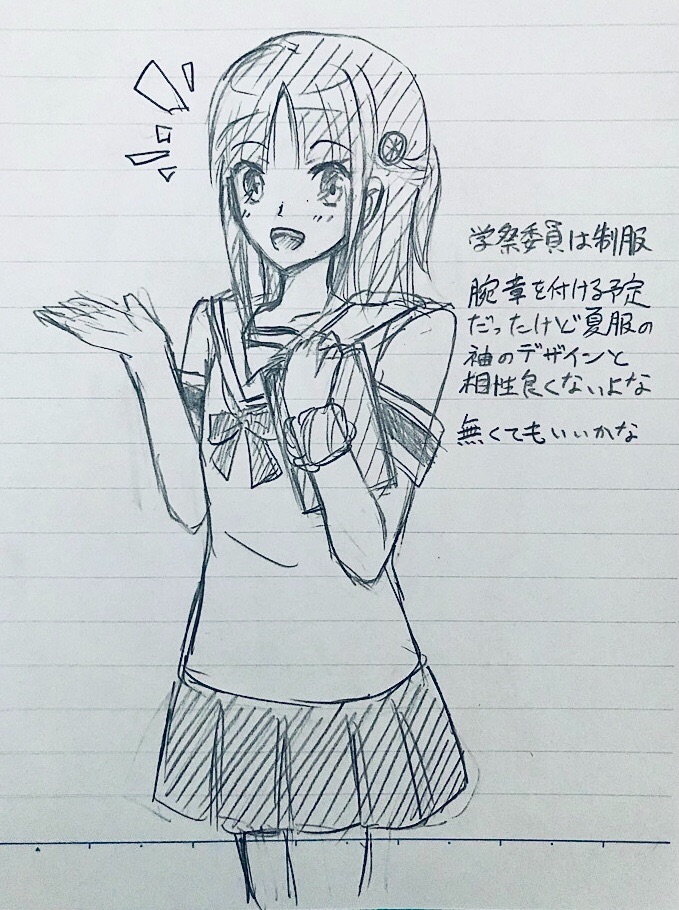 学祭委員は制服
腕章を付ける予定
だったけど夏服の
袖のデザインと
相性良くないよな
無くてもいいかな